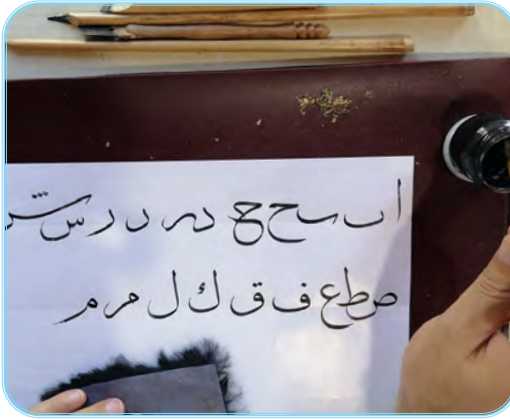 ا ب س ح ج د ر د ر س ش
ص ط ع ف ق ك ل م م